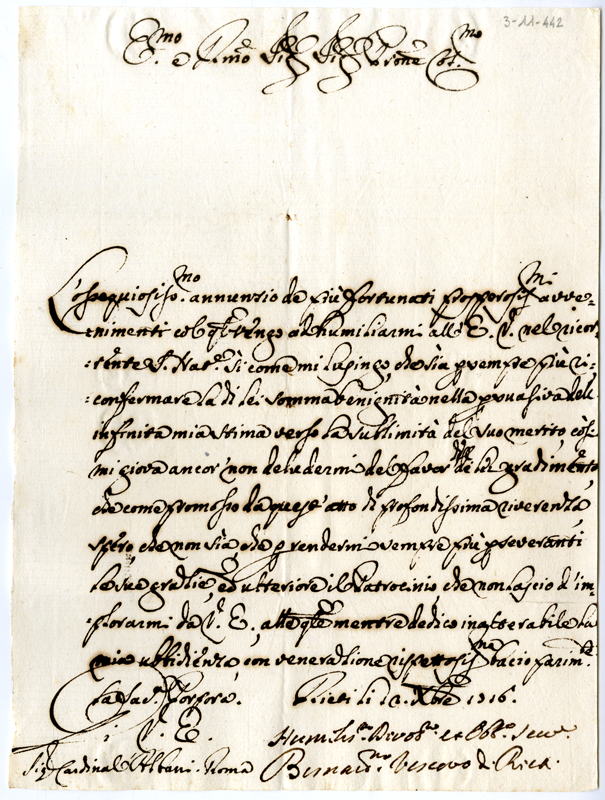 3-11-442
Em.mo e R.mo Sig.r Sig.r P.rone Col.mo
L'ossequiosiss.mo annunzio de più fortunati prosperosiss.mi avve-
:nimenti col q.le vengo ad humiliarmi all' E. V. nel ricor-
:rente S. Nat.e Sì come mi lusingo, che sia p sempre più ri-
:confermare la di lei somma benignità nella psuasiva dell'
infinita mia stima verso la sublimità del suo merito, così
mi giova ancor non deludermi del favor del di lei gradimento,
che come promosso da quest' atto di profondissima riverenza,
spero, che non sia che p rendermi sempre più pseveranti
le sue grazie, ed ulteriore il Patrocinio che non lascio d' im-
plorarmi da V. E., alla q.le mentre dedico inalterabile la
mia ubbidienza, con venerazione rispettosiss.ma bacio
la Sac. Porpora. Rieti li 12. Xbre 1716.
V. E.
Humiliss.o Devot.o et Obl.o Serv.
Sig. Cardinal Albani. Roma Bernard.no Vescovo di Rieti.